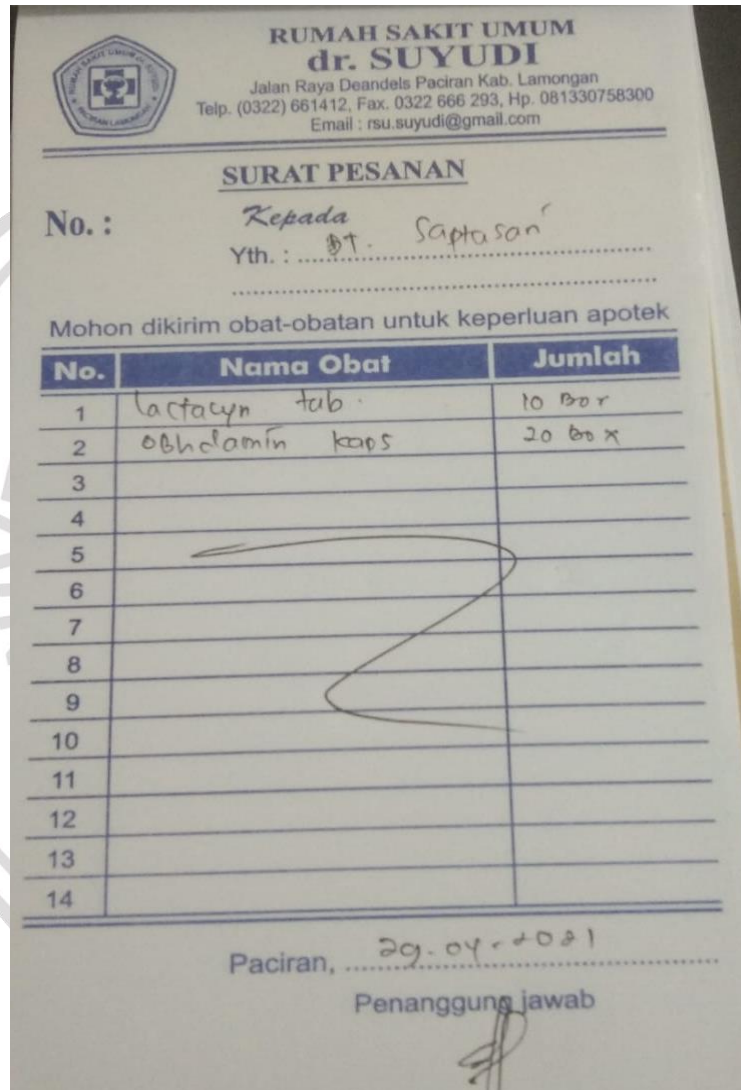 RUMAH SAKIT UMUM
dr. SUYUDI
Jalan Raya Deandels Paciran Kab. Lamongan
Telp. (0322) 661412, Fax. 0322 666 293, Hp. 081330758300
Email : rsu.suyudi@gmail.com
SURAT PESANAN
No. :
Kepada
Yth. : PT. Saptasari
Mohon dikirim obat-obatan untuk keperluan apotek
No. Nama Obat Jumlah
1 lactacyn tab. 10 Box
2 kaps 20 Box
3
4
5
6
7
8
9
10
11
12
13
14
Paciran, 29-04-2021
Penanggung jawab